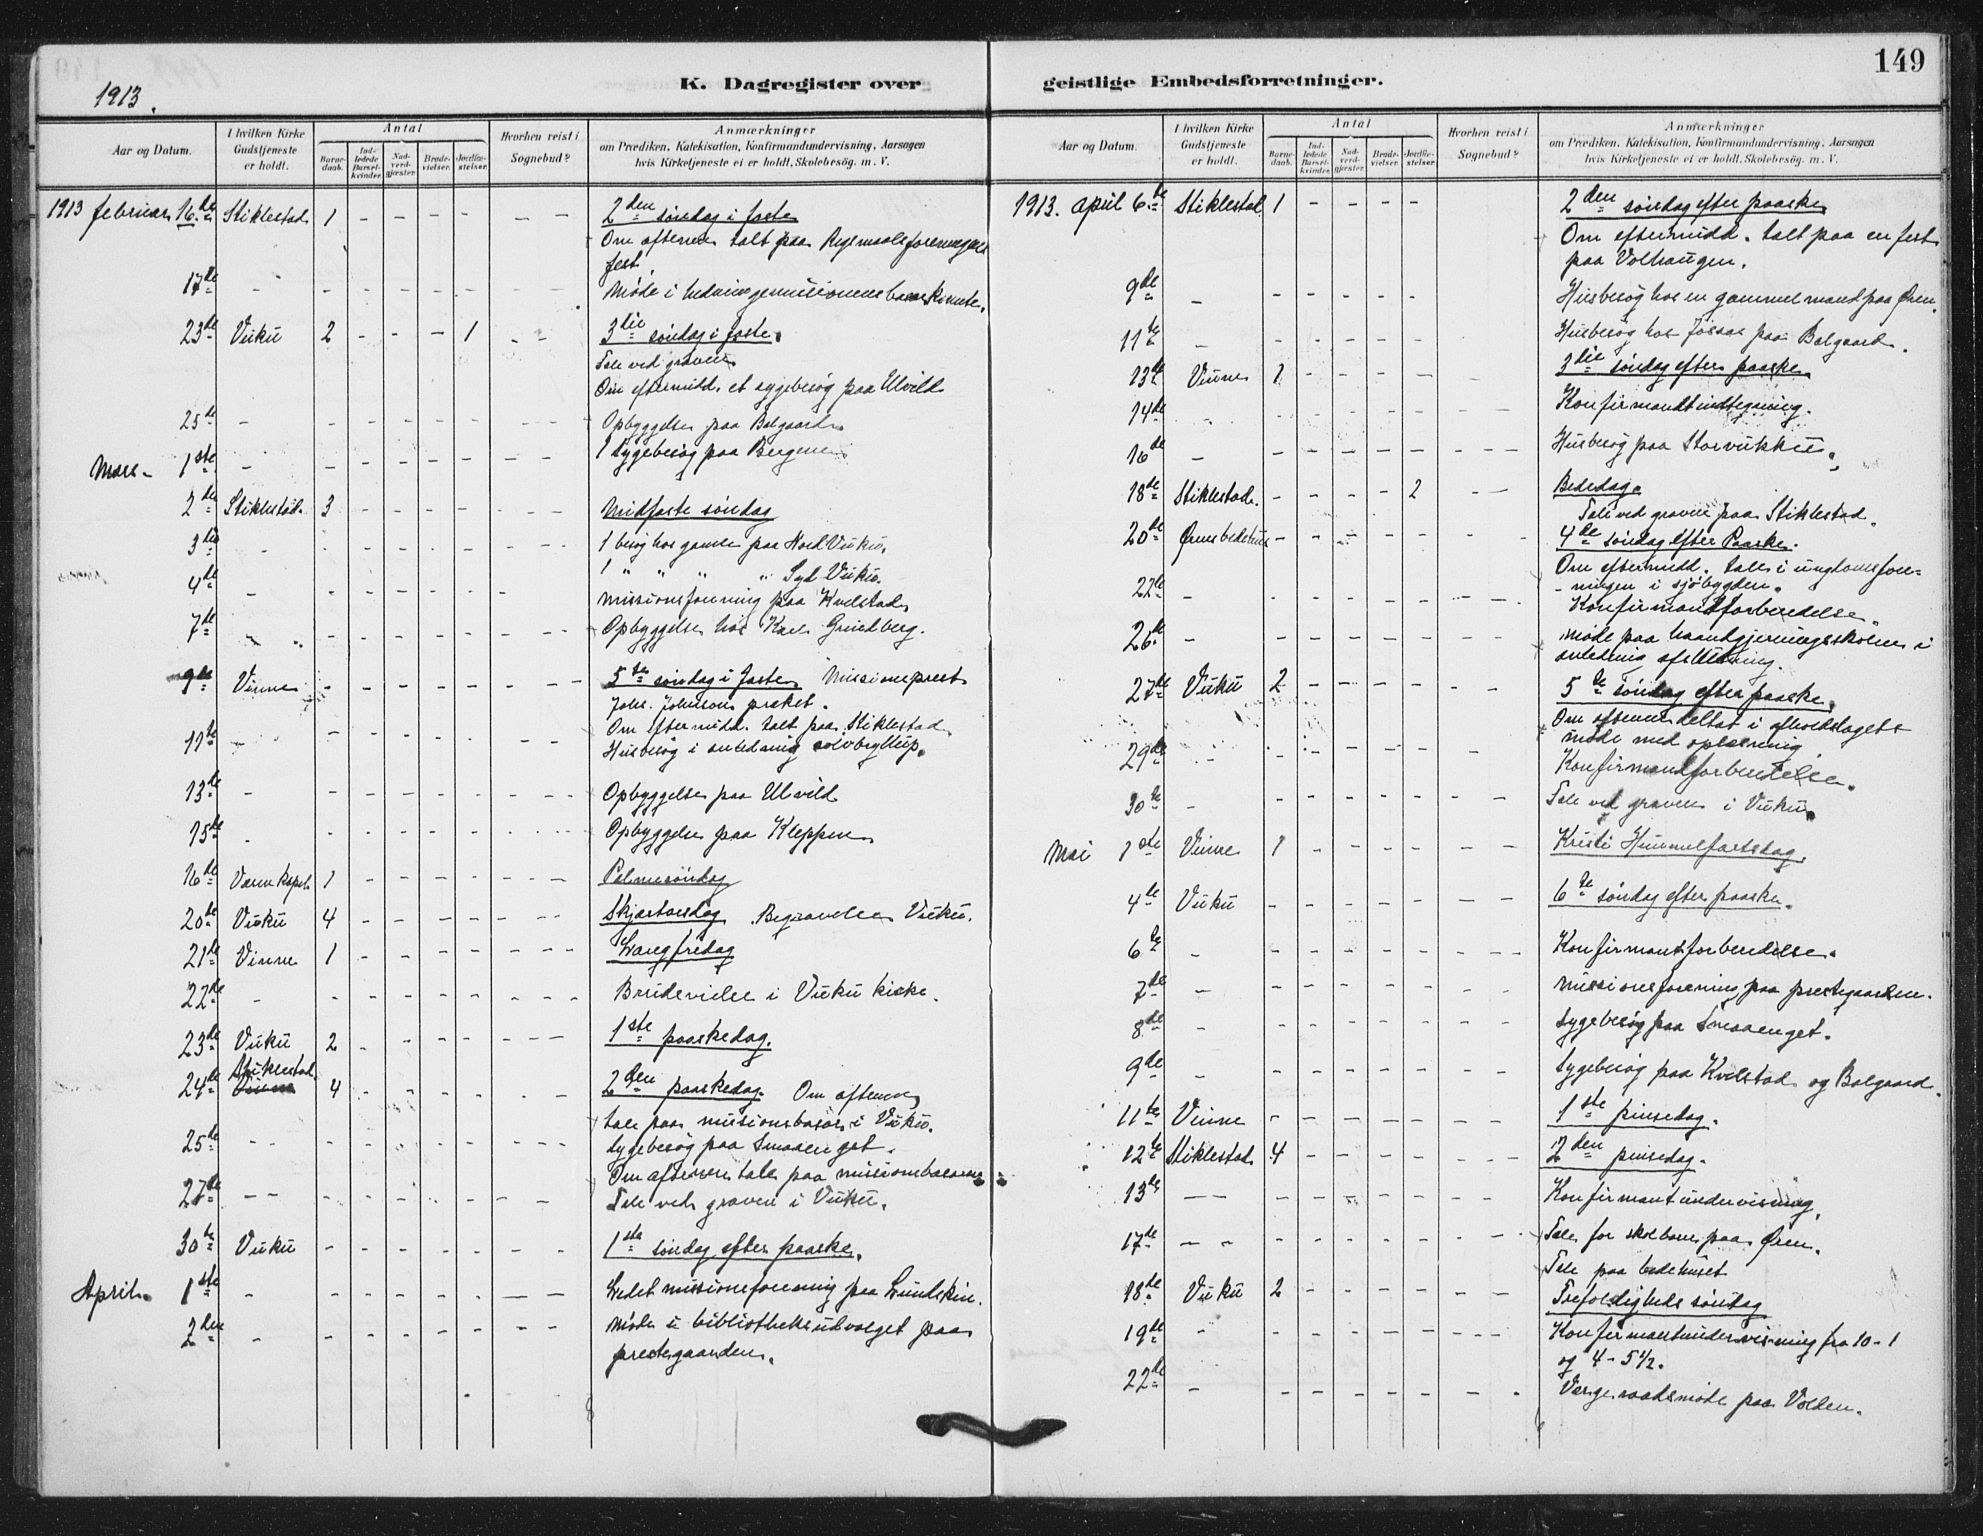 149
K. Dagregister over geistlige Embedsforretninger.
1913.
Aar og Datum. I hvilken Kirke Gudstjeneste er holdt. Antal Hvorhen reist i Sognebud? Anmærkninger
Barnedaab. Indledede Barselkvinder. Nadverdgjæster. Brudevielser. Jordfæstelser. om Prædiken, Katekisation, Konfirmandundervisning, Aarsagen hvis Kirketjeneste ei er holdt, Skolebesøg. m. V.
1913 februar 16de Stiklestad 1 - - - - - - 2den søndag i faste
Om aftenen talt paa
fest.
17de - - - - - - - Møde i
23de Vuku 2 - - - 1 - - 3die søndag i faste.
Tale ved graven
Om eftermidd. et sygebesøg paa Ulvild
25de - - - - - - - - Opbyggelse paa Balgaard
Mars - 1ste - - - - - - - - 1 sygebesøg paa
2den Stiklestad. 3 - - - - - - Midfaste søndag
3die - - - - - - - - 1 besøg hos gamle paa Nord Vuku.
1 " " " " Syd Vuku.
4de - - - - - - - missionsforening paa Kvelstad
7de - - - - - - - Opbyggelse hos Karl Grundberg.
9de Vinne - - - - - - - 5te søndag i faste Missionsprest
Johs. Johnson præket.
Om eftermidd. talt paa Stiklestad
11te - - - - - - - Husbesøg i anledning sølvbryllup.
13de - - - - - - - Opbyggelse paa Ulvild
15de - - - - - - - Opbyggelse paa Kleppen
16de kapel 1 - - - - - - Palmesøndag
20de Vuku 4 - - - - - - Skjærtorsdag Begravelse Vuku.
21de Vinne 1 - - - - - - Langfredag
22de - - - - - - - - Brudevielse i Vuku kirke.
23de Vuku 2 - - - - - - 1ste paaskedag.
24de Stiklestad 4 - - - - - - 2den paaskedag. Om aftenen
tale paa missionsbasar i Vuku.
25de - - - - - - - Sygebesøg paa Smaaenget.
Om aftenen tale paa missionsbasaren
27de - - - - - - - Tale ved graven i Vuku.
30te Vuku - - - - - - - 1ste søndag efter paaske.
April. 1ste - - - - - - - Ledet missionsforening paa Lundskin.
2den - - - - - - - Møde i bibliotheksudvalget paa
prestegaarden.
Aar og Datum. I hvilken Kirke Gudstjeneste er holdt. Antal Hvorhen reist i Sognebud? Anmærkninger
Barnedaab. Indledede Barselkvinder. Nadverdgjæster. Brudevielser. Jordfæstelser. om Prædiken, Katekisation, Konfirmandundervisning, Aarsagen hvis Kirketjeneste ei er holdt, Skolebesøg. m. V.
1913. april 6te Stiklestad 1 - - - - 2den søndag efter paaske
Om eftermidd. talt paa en fest
paa Volhaugen.
9de - - - - - - Husbesøg hos en gammel mand paa Øren.
11te - - - - - - Husbesøg hos paa Balgaard.
13de Vinne 1 - - - - - 3die søndag efter paaske
14de - - - - - - - Konfirmandindtegning.
16de - - - - - - - Husbesøg paa Storvukku.
18de Stiklestad. - - - - 2 - - Bededag.
Tale ved graven paa Stiklestad.
20de bedehus - - - - - - 4de søndag efter Paaske.
Om eftermidd. tale i ungdomsfore-
ningen i sjøbygden.
22de - - - - - - - Konfirmandforberedelse.
26de - - - - - - - møde paa haandgjerningsskolen i
anledning afslutning.
27de Vuku 2 - - - - - - 5te søndag efter paaske.
Om aftenen deltat i afholdslagets
møde med oplæsning
29de - - - - - - - Konfirmandforberedelse.
30te - - - - - - - Tale ved graven i Vuku.
Mai 1ste Vinne 1 - - - - - - Kristi Himmelfartsdag.
4de Vuku - - - - - - - 6te søndag efter paaske.
6te - - - - - - - Konfirmantforberedelse.
7de - - - - - - - missionsforening paa prestegaarden.
8de - - - - - - - Sygebesøg paa Smaaenget.
9de - - - - - - - Sygebesøg paa Kvelstad og Balgaard.
11te Vinne - - - - - - - 1ste pinsedag.
12te Stiklestad 4 - - - - - - 2den pinsedag.
13de - - - - - - - Konfirmantundervisning.
17de - - - - - - - Tale for skolbarn paa Øren.
Tale paa bedehuset
18de Vuku 2 - - - - - - Trefoldigheds søndag
19de - - - - - - - Konfirmantundervisning fra 10-1
og 4-5½.
22de - - - - - - - Vergeraadsmøde paa Volden.